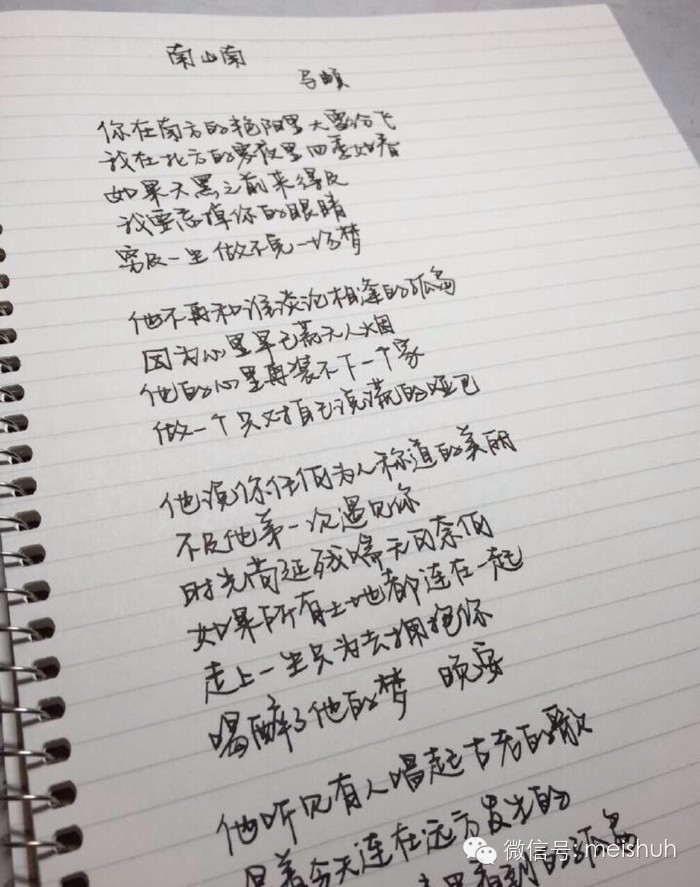 南山南
马頔
你在南方的艳阳里大雪纷飞
我在北方的寒夜里四季如春
如果天黑之前来得及
我要忘掉你的眼睛
穷极一生做不完一场梦
他不再和谁谈论相逢的孤岛
因为心里早已荒无人烟
他的心里再装不下一个家
做一个只对自己说谎的哑巴
他说你任何为人称道的美丽
不及他第一次遇见你
时光苟延残喘无可奈何
如果所有土地都连在一起
走上一生只为去拥抱你
喝醉了他的梦 晚安
他听见有人唱起古老的歌
唱着今天还在远方发生的
里看到的孤岛
微信号: meishuh